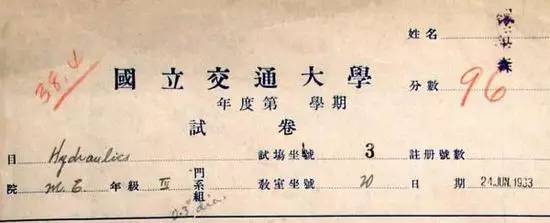 姓名 森
38.4
國立交通大學 分數 96
年度第 學期
試卷
目 Hydraulics 試場坐號 3 註册號數
院 M.E. 年級 IV 門系組 教室坐號 20 日期 24 JUN.1933
dia.